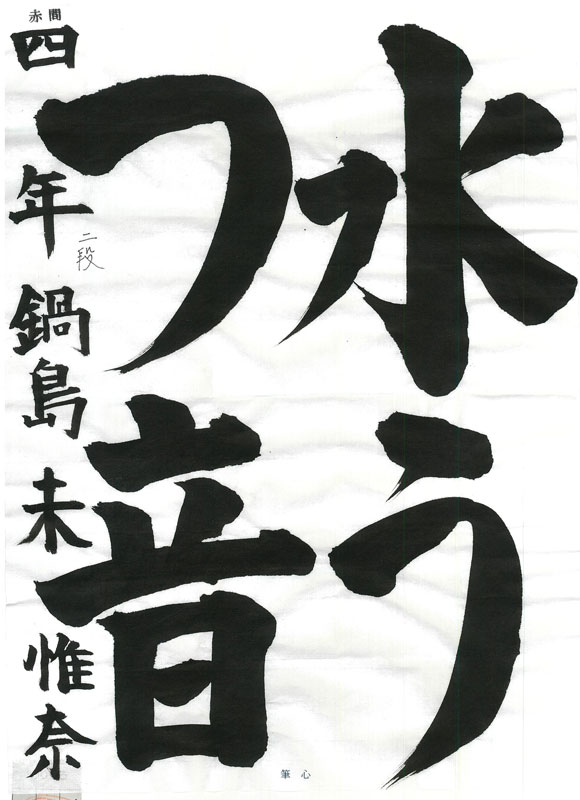 水う
つ音
赤間
四年 鍋島 未惟奈
二段
筆心